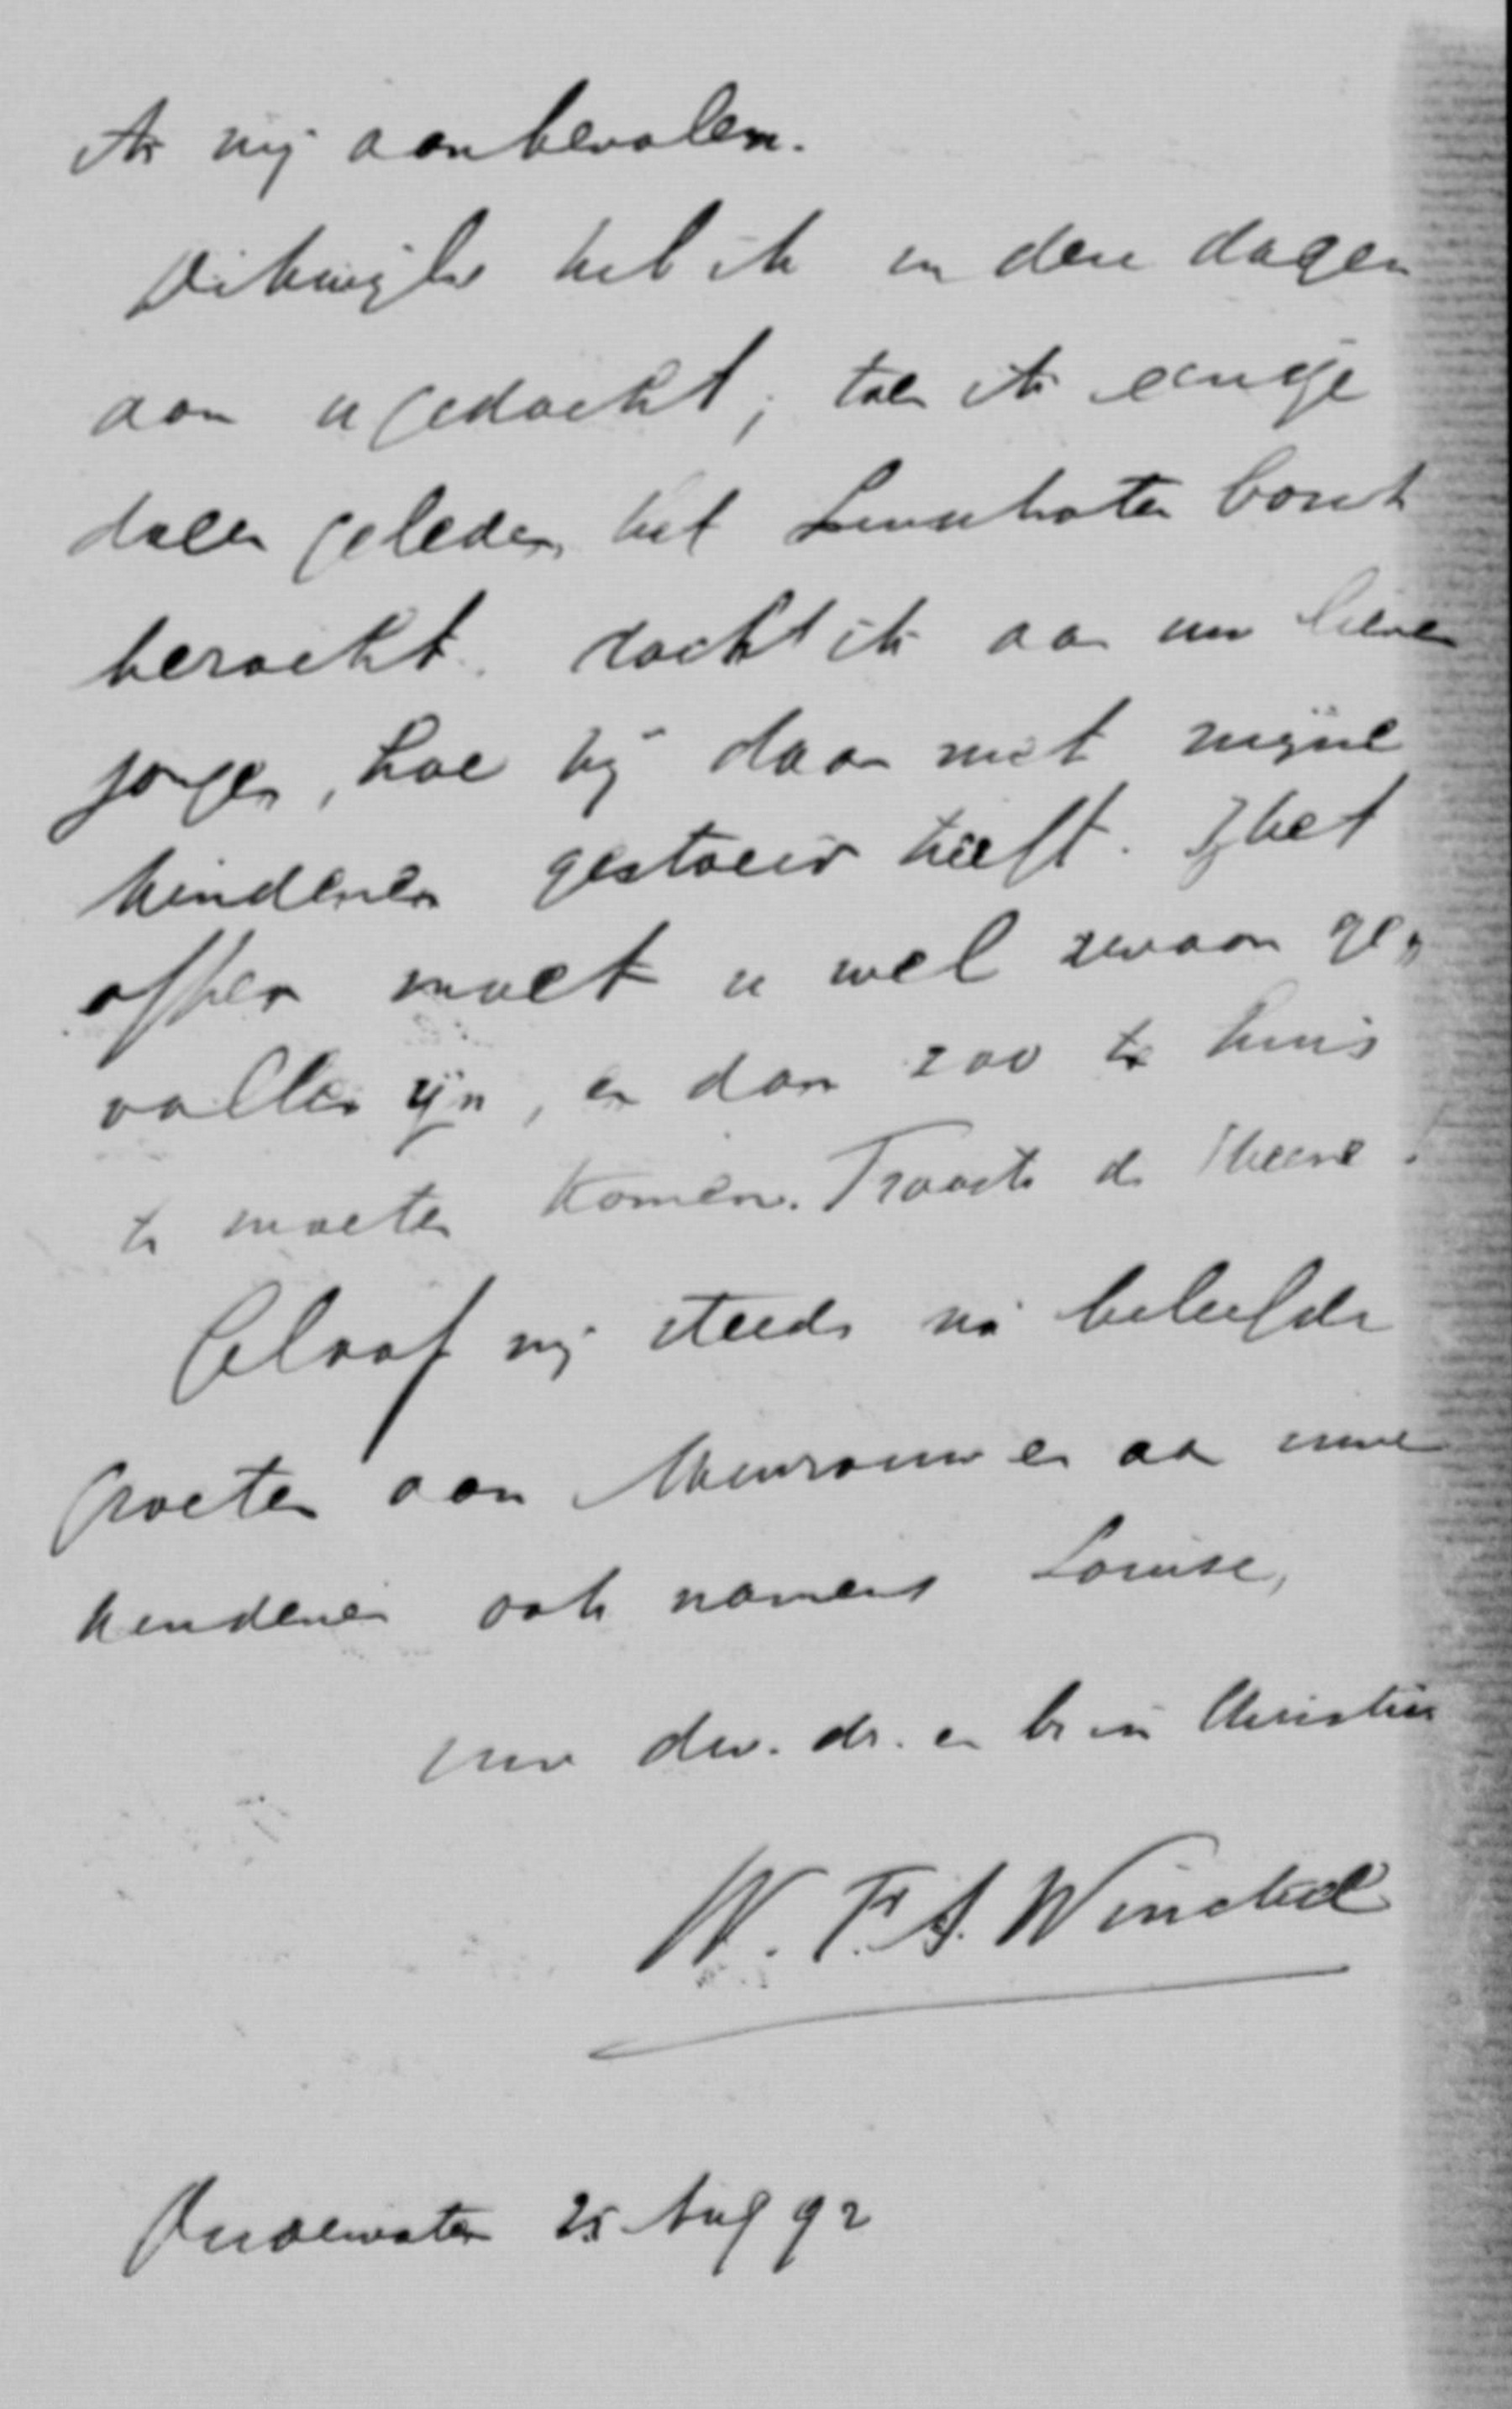 ik mij aanbevolen.
Dikwijls heb ik in deze dagen
aan u gedacht; toen ik eenige
dagen geleden het Linschoter bosch
bezocht dacht ik aan uw lieven
jongen, hoe hij daar met mijne
kinderen gestoeid heeft. Het
offer moet u wel zwaar ge„
vallen zijn, en dan zoo te huis
te moeten komen. Trooste de Heere!
Geloof mij steeds na beleefde
groeten aan Mevrouw en aan uwe
kinderen ook namens Louise,
uw dw. dr. en br in Christus
W. F. A. Winckel
Oudewater 25 Aug 92